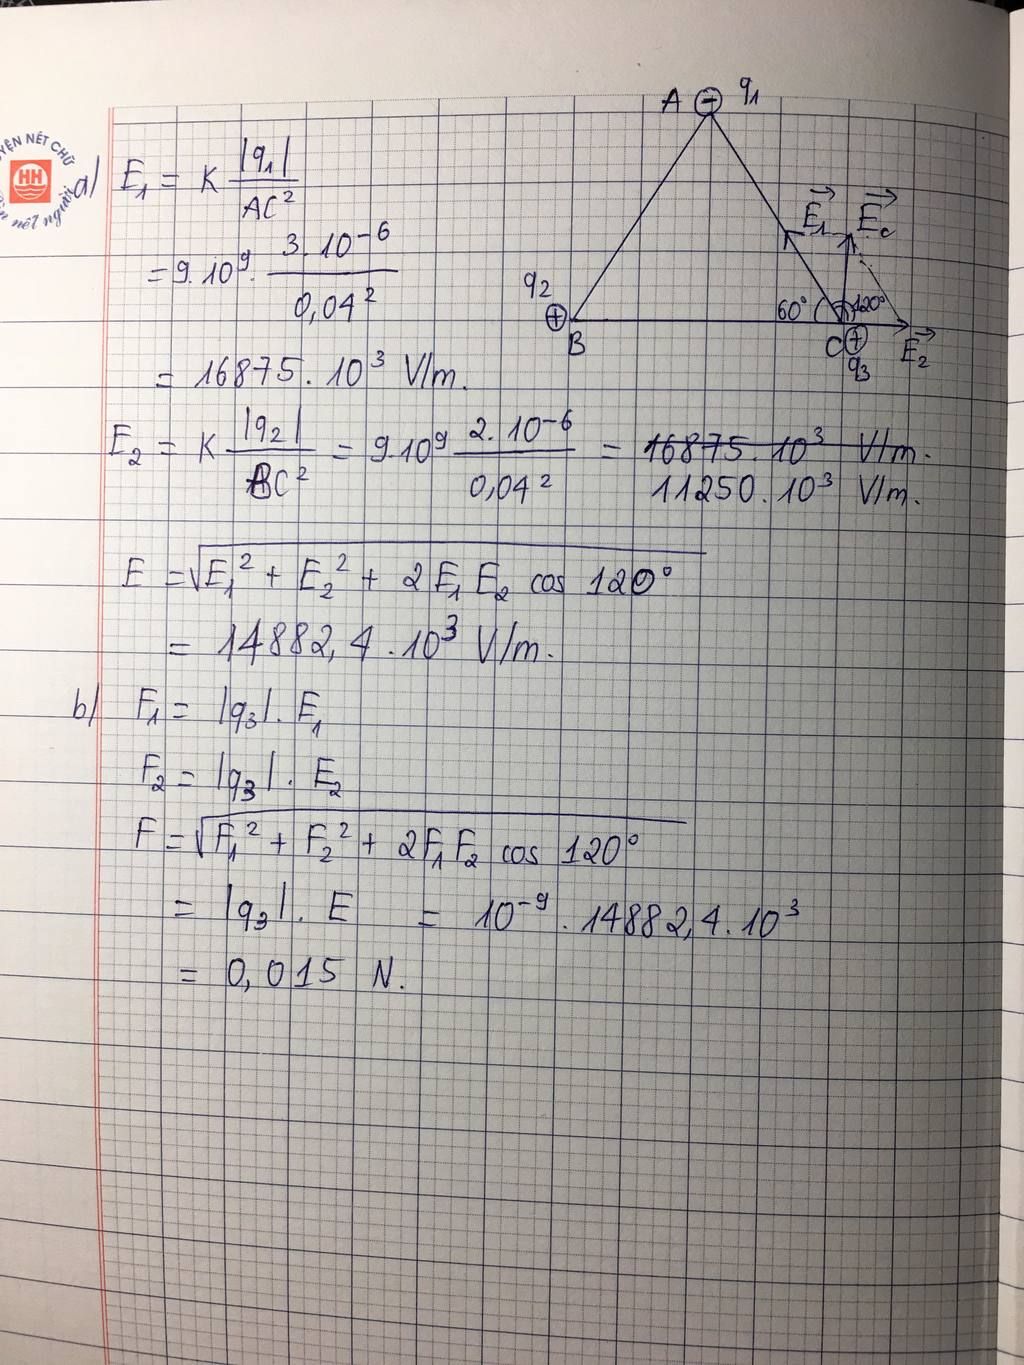 LUYỆN NÉT CHỮ
HH
Rèn nết người
A q₁
a) E₁ = K |q₁| / AC²
= 9.10⁹. 3.10⁻⁶ / 0,04²
E₁ Ec
q₂
60° 120°
B C E₂
q₃
= 16875.10³ V/m.
E₂ = K |q₂| / BC² = 9.10⁹ 2.10⁻⁶ / 0,04² = 16875.10³ V/m.
11250.10³ V/m.
E = √E₁² + E₂² + 2E₁E₂ cos 120°
= 14882,4.10³ V/m.
b) F₁ = |q₃|. E₁
F₂ = |q₃|. E₂
F = √F₁² + F₂² + 2F₁F₂ cos 120°
= |q₃|. E = 10⁻⁹.14882,4.10³
= 0,015 N.